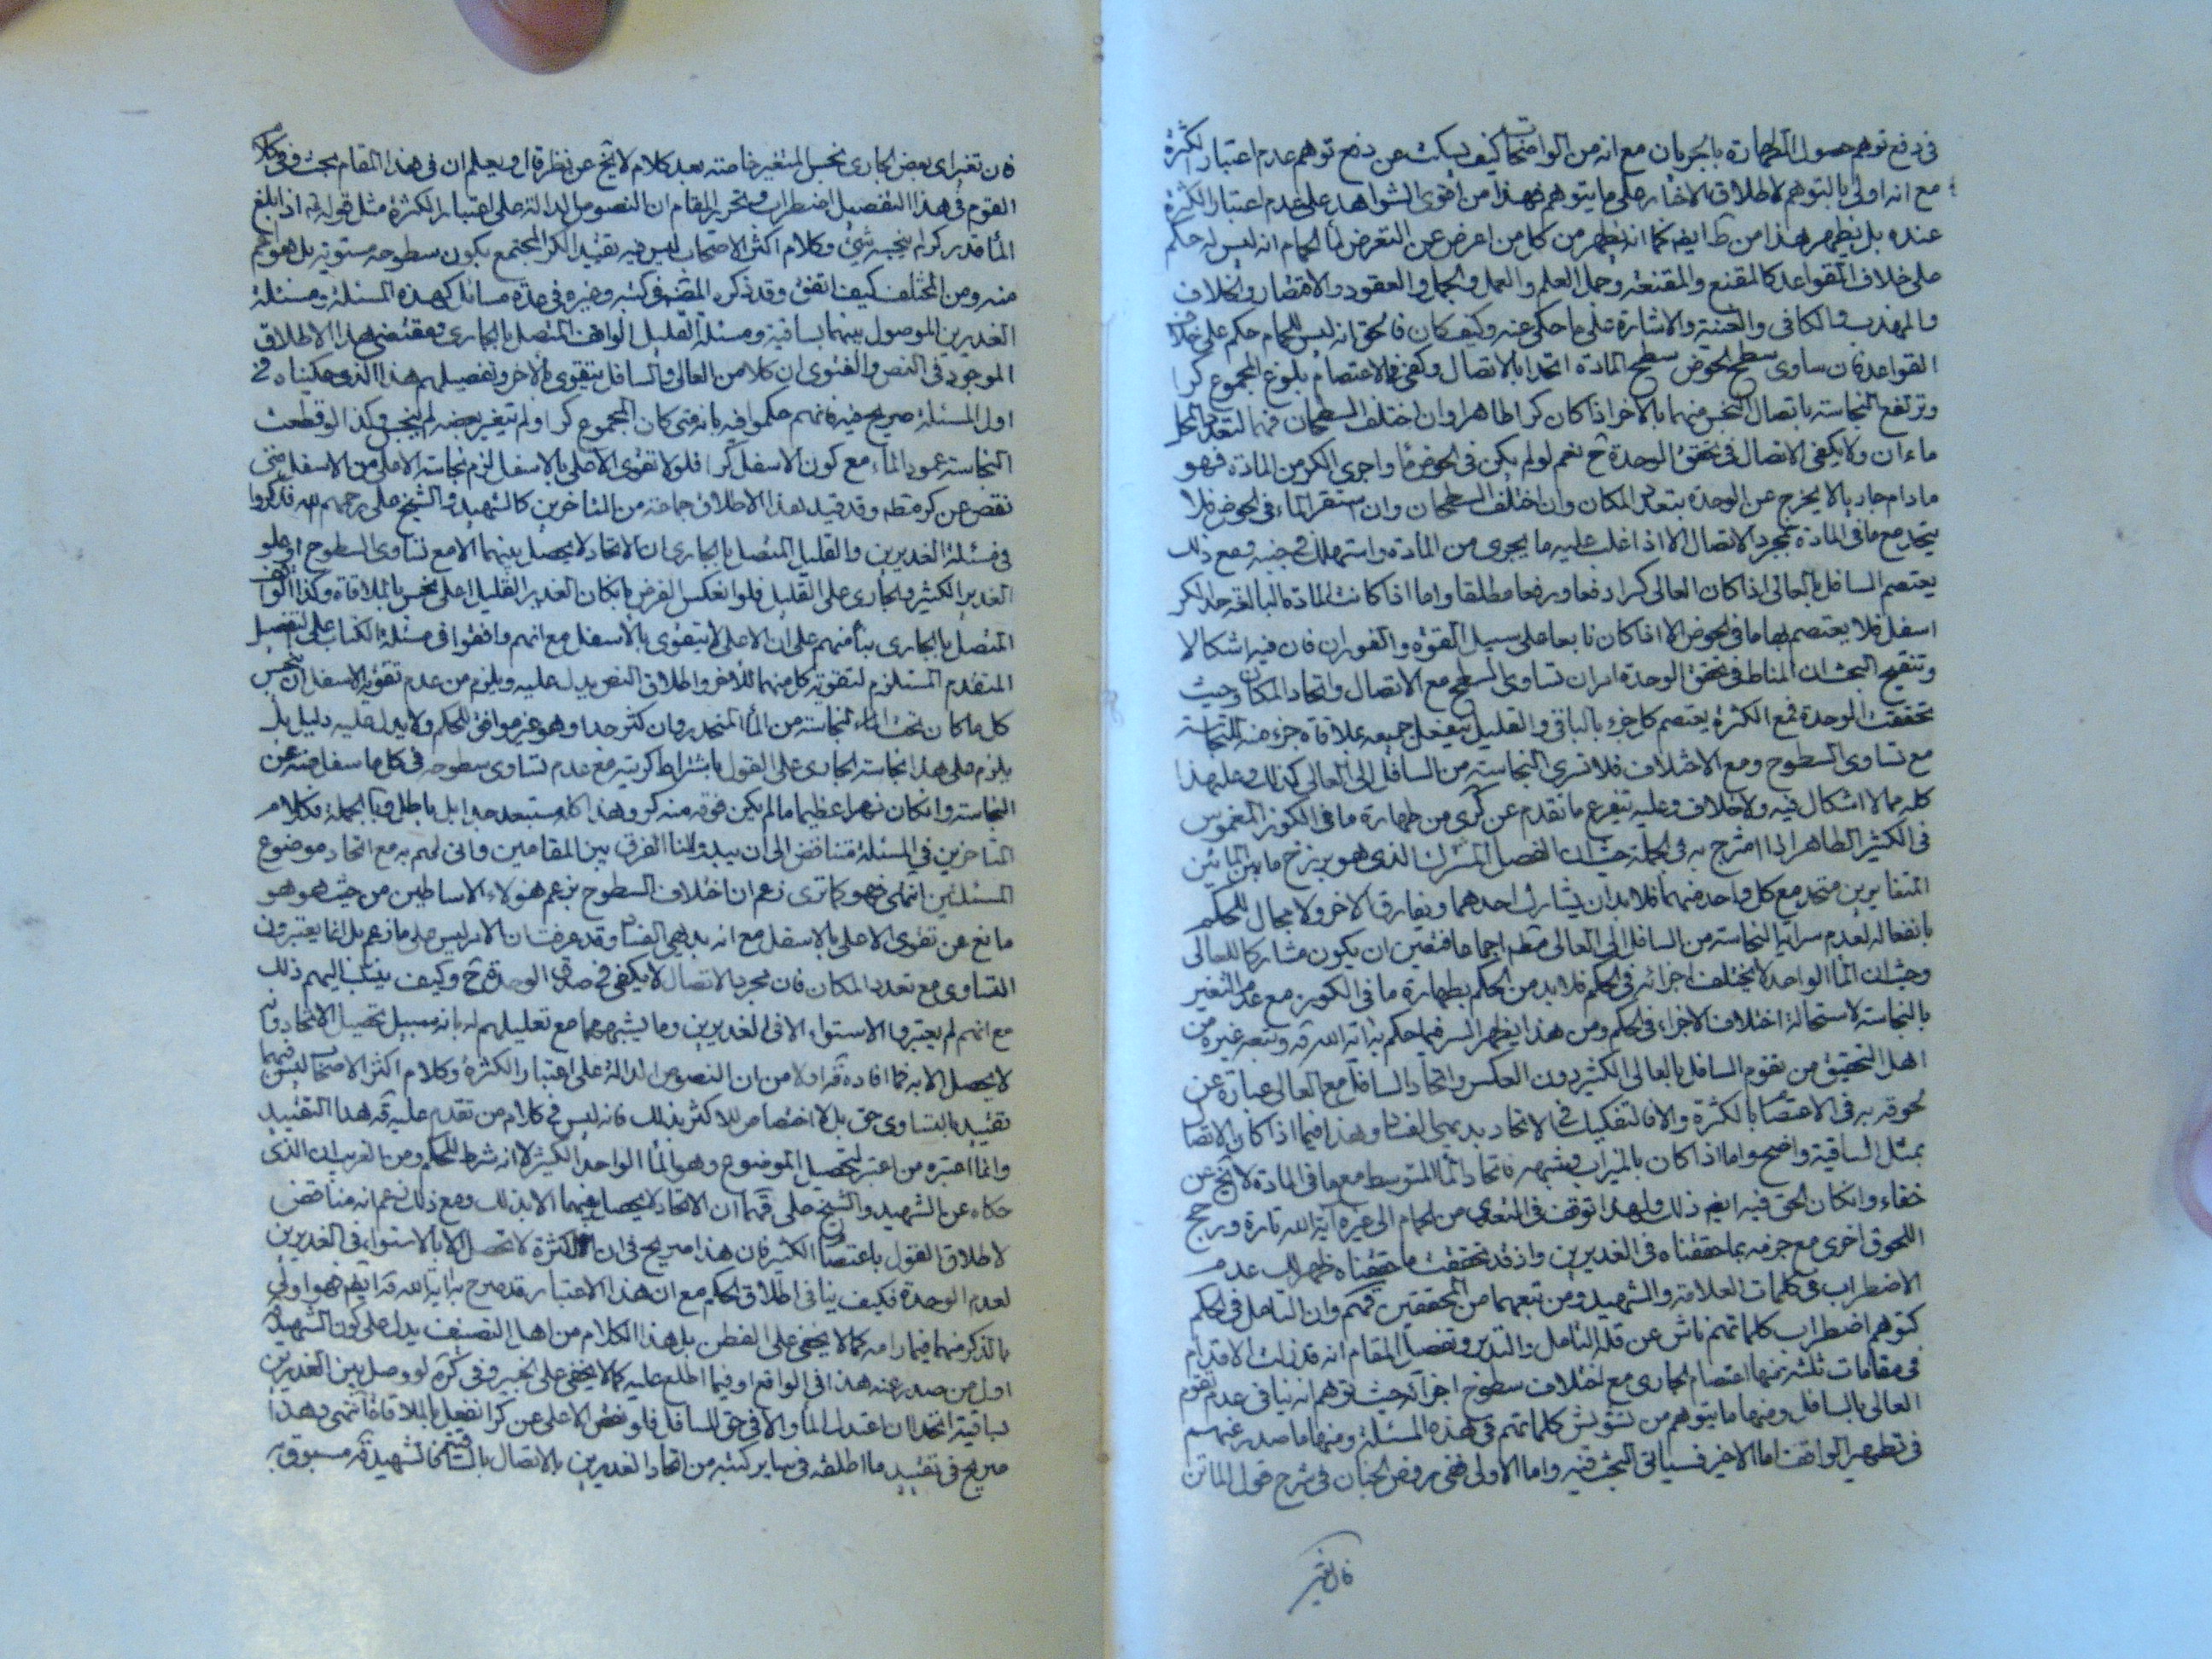 في دفع توهم حصول الطهارة بالجريان مع انه من الواضحات كيف يسكت عن دفع توهم عدم اعتبار الكثرة
مع انه اولى بالتوهم لاطلاق الاخبار على ما يتوهم فهذا من اقوى الشواهد على عدم اعتبار الكثرة
عنده بل يظهر هذا من كما انه يظهر من كل من اعرض عن التعرض لماء الحمام انه ليس له حكم
على خلاف القواعد كالمقنع والمقنعة وجمل العلم والعمل والجمل والعقود والاقتصار والخلاف
والمهذب والكافي والغنية والاشارة على ما حكى عنه وكيف كان فالحق انه ليس للحمام حكم على خلاف
القواعد فان ساوى سطح الحوض سطح المادة اتحدا بالاتصال وكفى في الاعتصام بلوغ المجموع كرا
وترتفع النجاسة باتصال النجس منهما بالاخر اذا كان كرا طاهرا وان اختلف السطحان فهما لتعدد المحل
ماءان ولا يكفي الاتصال في تحقق الوحدة ح نعم لو لم يكن في الحوض ماء واجرى الكر من المادة فهو
مادام جاريا لا يخرج عن الوحدة بتعدد المكان وان اختلف السطحان وان استقر الماء في الحوض فلا
يتحد مع ما في المادة بمجرد الاتصال الا اذا غلب عليه ما يجري من المادة واستهلك في جنبه ومع ذلك
يعتصم السافل بالعالي اذا كان العالي كرا دفعا ورفعا مطلقا واما اذا كانت المادة البالغة حد الكر
اسفل فلا يعتصم بها ما في الحوض الا اذا كان نابعا على سبيل القوة والفوران فان فيه اشكالا
وتنقيح البحث ان المناط في تحقق الوحدة امران تساوى السطح مع الاتصال واتحاد المكان وحيث
تحققت الوحدة فمع الكثرة يعتصم كل جزء بالباقي والقليل ينفعل جميعه بملاقاة جزء منه النجاسة
مع تساوى السطوح ومع الاختلاف فلا تسري النجاسة من السافل الى العالي كذلك وعليهذا
كله مما لا اشكال فيه ولا خلاف وعليه تتفرع ما تقدم عن كرى من طهارة ما في الكوز المغموس
في الكثير الطاهر اذا امتزج به في الجملة حيث ان الفصل المشترك الذي هو برزخ ما بين المائين
المتغايرين متحد مع كل واحد منهما فلا بد ان يشارك احدهما ويفارق الاخر ولا مجال للحكم
بانفعاله لعدم سراية النجاسة من السافل الى العالي اجماعا فتعين ان يكون مشاركا للعالي
وحيث ان الماء الواحد لا يختلف اجزائه في الحكم فلا بد من الحكم بطهارة ما في الكوز مع عدم التغير
بالنجاسة لاستحالة اختلاف الاجزاء في الحكم ومن هذا يظهر السر فيما حكم به اية الله قه وتبعه غيره من
اهل التحقيق من تقوم السافل بالعالي الكثير دون العكس واتحاد السافل مع العالي عبارة عن
لحوقه به في الاعتصام بالكثرة والا فالتفكيك في الاتحاد بديهي الفساد وهذا فيما اذا كان الاتصال
بمثل الساقية واضح واما اذا كان بالميزاب وشبهه فاتحاد الماء المتوسط مع ما في المادة لا يخ عن
خفاء وان كان الحق فيه ايضم ذلك ولهذا توقف في التعدي من الحمام الى غيره آية الله تارة ورجح
اللحوق اخرى مع جزمه بما حققناه في الغديرين واذ قد تحققت ما حققناه ظهر لك عدم
الاضطراب في كلمات العلامة والشهيد ومن تبعهما من المحققين قهم وان التامل في الحكم
كتوهم اضطراب كلماتهم ناش عن قلة التامل والتدبر وتفصيل المقام انه قد زلت الاقدام
في مقامات ثلثة منها اعتصام الجاري مع اختلاف سطوح اجزائه حيث توهم انه ينافي عدم تقوم
العالي بالسافل ومنها ما يتوهم من تشويش كلماتهم في هذه المسئلة ومنها ما صدر عنهم
في تطهير الواقف اما الاخير فسياتي البحث فيه واما الاولى ففي روض الجنان في شرح قول الماتن
فان تغير
فان تغير اى بعض الجاري نجس المتغير خاصة بعد كلام لا يخ عن نظر قال ويعلم ان في هذا المقام بحث وفي كلام
القوم في هذا التفصيل اضطراب وتحرير المقام ان النصوص الدالة على اعتبار الكثرة مثل قوله ع اذا بلغ
الماء قدر كر لم ينجسه شئ وكلام اكثر الاصحاب ليس فيه تقييد الكر المجتمع بكون سطوحه مستوية بل هو اعم
منه ومن المختلف كيف اتفق وقد ذكر المصنف في كتبه وغيره في عدة مسائل كهذه المسئلة ومسئلة
الغديرين الموصول بينهما بساقية ومسئلة القليل الواقف المتصل بالجاري ومقتضى هذا الاطلاق
الموجود في النص والفتوى ان كلا من العالي والسافل يتقوى بالاخر وتفصيلهم هذا الذي حكيناه في
اول المسئلة صريح فيه فانهم حكموا فيه بانه متى كان المجموع كرا ولم تتغير بعضه لم ينجس وكذا لو قطعت
النجاسة عمود الماء مع كون الاسفل كرا فلو لا تقوى الاعلى بالاسفل لزم نجاسة الاعلى من الاسفل متى
نقص عن كر مطم وقد قيد هذا الاطلاق جماعة من المتاخرين كالشهيد والشيخ على رحمهم الله فذكروا
في مسئلة الغديرين والقليل المتصل بالجاري ان الاتحاد لا يحصل بينهما الا مع تساوى السطوح او علو
الغدير الكثير والجاري على القليل فلو انعكس الفرض بان كان الغدير القليل اعلى نجس بالملاقاة وكذا الواقف
المتصل بالجاري بناء منهم على ان الاعلى لا يتقوى بالاسفل مع انهم وافقوا في مسئلة الكتاب على التفصيل
المتقدم المستلزم لتقوية كل منهما للاخر واطلاق النص يدل عليه ويلزم من عدم تقوية الاسفل ان ينجس
كل ما كان تحت النجاسة من الماء المنحدر وان كثر جدا وهو غير موافق للحكم ولا يدل عليه دليل بل
يلزم على هذا نجاسة الجاري على القول باشتراط كريته مع عدم تساوى سطوحه في كل ما سفل منه عن
النجاسة وان كان نهرا عظيما ما لم يكن فوقه منه كر وهذا كله مستبعد جدا بل باطل وبالجملة فكلام
المتاخرين في المسئلة متناقض الى ان يبدو لنا الفرق بين المقامين وانى لهم به مع اتحاد موضوع
المسئلتين انتهى فهو كما ترى زعم ان اختلاف السطوح بزعم هؤلاء الاساطين من حيث هو هو
مانع عن تقوى الاعلى بالاسفل مع انه بديهي الفساد وقد عرفت ان الامر ليس على ما زعم بل انما يعتبرون
التساوى مع تعدد المكان فان مجرد الاتصال لا يكفي في صدق الوحدة ح وكيف ينسب اليهم ذلك
مع انهم لم يعتبروا الاستواء الا في الغديرين وما يشبههما مع تعليلهم له بانه سبيل تحصيل الاتحاد وانه
لا يحصل الا به فما افاده قه اولا من ان النصوص الدالة على اعتبار الكثرة وكلام اكثر الاصحاب ليس فيهما
تقييد بالتساوى حق بل لا اختصاص للاكثر بذلك فانه ليس في كلام من تقدم عليه قه هذا التقييد
وانما اعتبره من اعتبر لتحصيل الموضوع وهو الماء الواحد الكثير لا انه شرط للحكم ومن الغريب ان الذي
حكاه عن الشهيد والشيخ على قهما ان الاتحاد لا يحصل بينهما الا بذلك ومع ذلك زعم انه مناقض
لاطلاق القول باعتصام الكثير فان هذا صريح في ان الكثرة لا تحصل الا بالاستواء في الغديرين
لعدم الوحدة فكيف ينافي اطلاق الحكم مع ان هذا الاعتبار قد صرح به اية الله قه ايضم فهو اولى
بالذكر منهما فيما رامه كما لا يخفى على الفطن بل هذا الكلام من اهل التصنيف يدل على كون الشهيد
اول من صدر عنه هذا في الواقع او فيما اطلع عليه كما لا يخفى على الخبير وفي كره لو وصل بين الغديرين
بساقية اتحدا ان اعتدل الماء والا في حق السافل فلو نقص الاعلى عن كر انفعل بالملاقاة انتهى وهذا
صريح في تقييد ما اطلقه في ساير كتبه من اتحاد الغديرين بالاتصال بالساقية فالشهيد قه مسبوق به